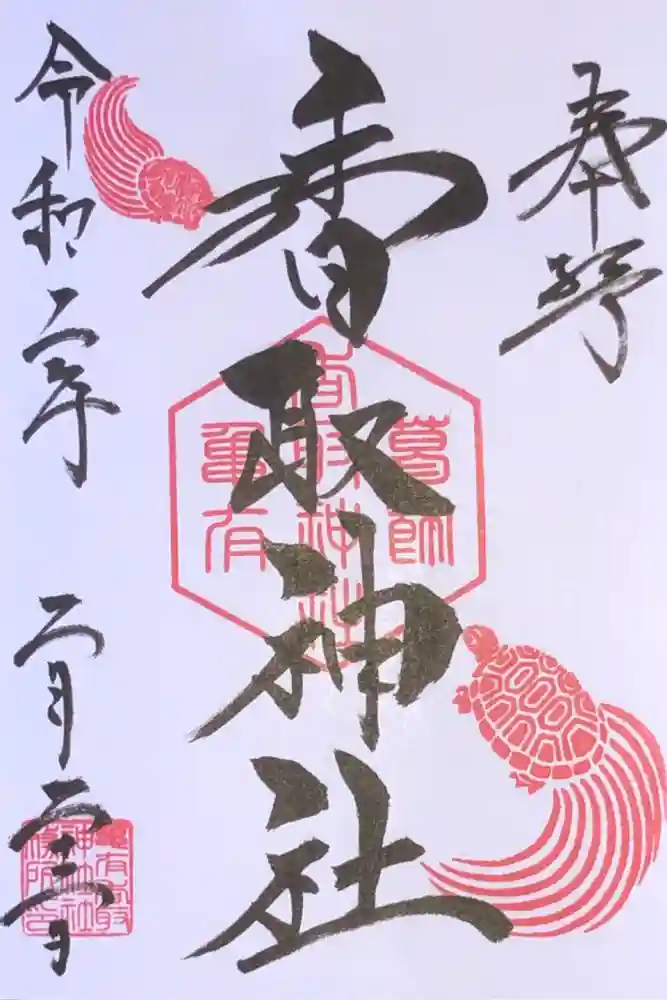 奉拝
香取神社
葛飾
香取神社
亀有
令和二年
二月
亀有香取
神社社
務所印